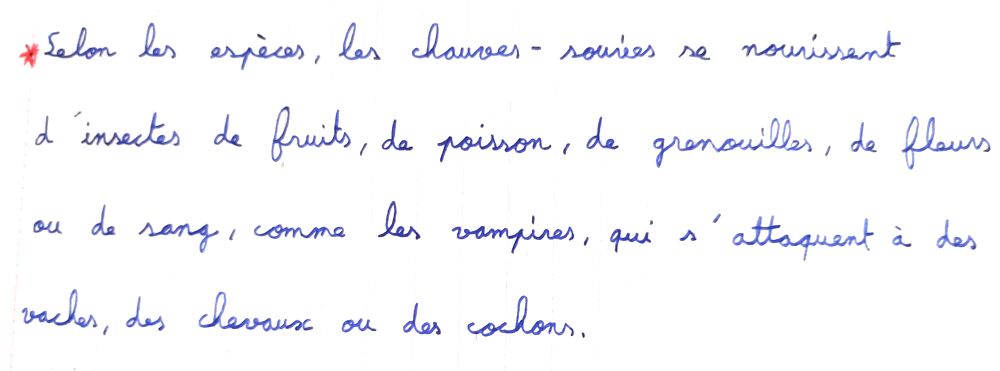 *Selon les espèces, les chauves-souries se nourissent
d'insectes de fruits, de poisson, de grenouilles, de fleurs
ou de sang, comme les vampires, qui s'attaquent à des
vaches, des chevaux ou des cochons.